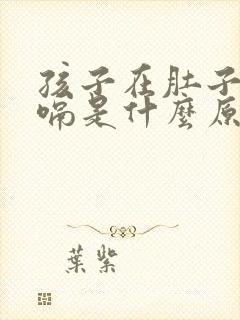 孩子在肚子
嗝是什麼原
葉紫